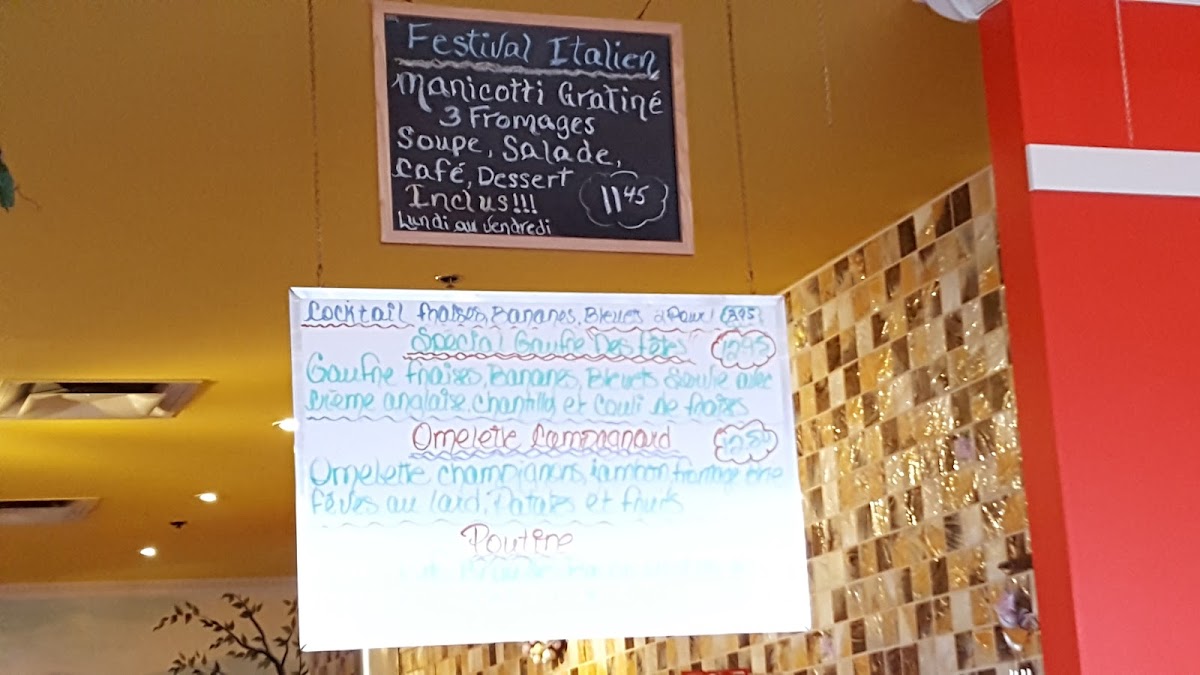 Festival Italien
Manicotti Gratiné
3 Fromages
Soupe, Salade,
Café, Dessert
Inclus!!! 11 45
Lundi au Vendredi
Cocktail fraises, Bananes, Bleuets
Spécial Gaufre "Des fêtes" 12.95
Gaufre fraises, Bananes, Bleuets avec
crème anglaise, chantilly et couli de fraises
Omelette Campagnard
Omelette champignons, jambon, fromage
fêves au lard, Patates et fruits
Poutine